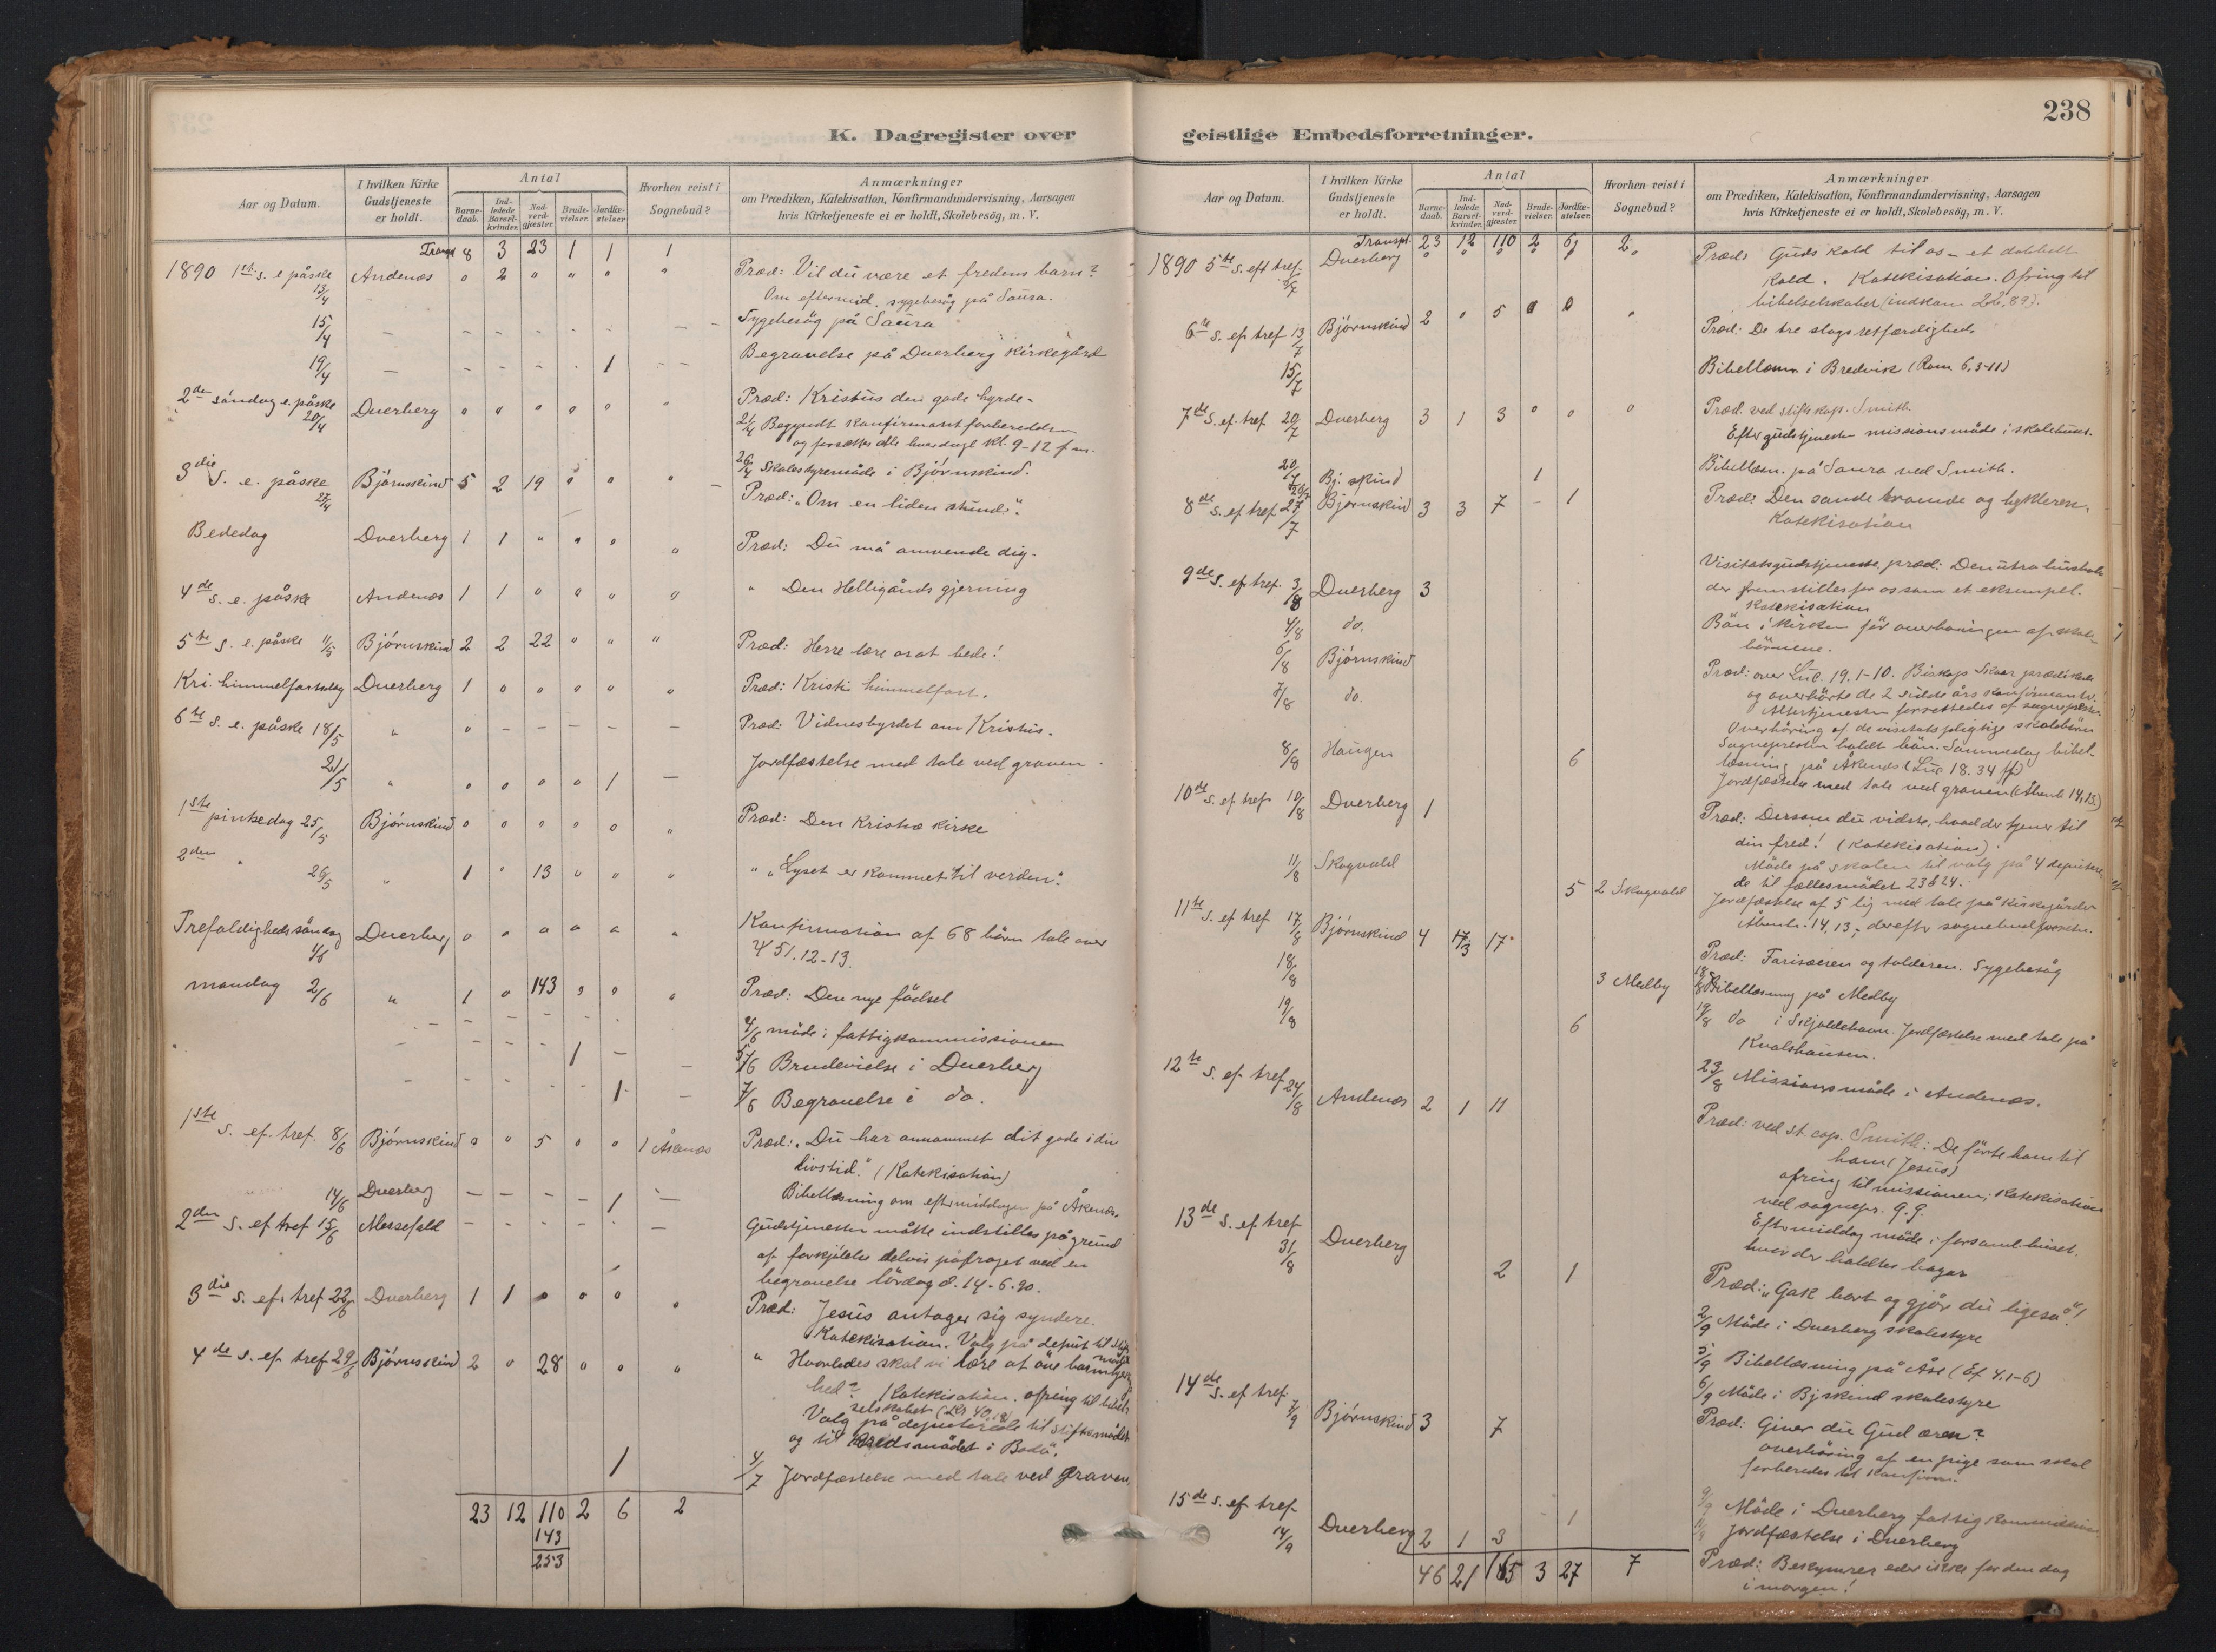 238
K. Dagregister over geistlige Embedsforretninger.
Aar og Datum.
I hvilken Kirke Gudstjeneste er holdt.
Antal
Barne-daab.
Ind-ledede Barsel-kvinder.
Nad-verd-gjæster.
Brude-vielser.
Jordfæ-stelser.
Hvorhen reist i Sognebud?
Anmærkninger
om Prædiken, Katekisation, Konfirmandundervisning, Aarsagen
hvis Kirketjeneste ei er holdt, Skolebesög, m. V.
Transp 8 3 23 1 1 1
1890 1ste s. e påske 13/4 Andenæs 0 2 " " " " Præd: Vil du være et fredens barn?
Om eftermid. sygebesøg på Saura.
15/4 Sygebesøg på Saura
19/4 1 Begravelse på Dverberg kirkegård
2den söndag e. påske 20/4 Dverberg 0 0 0 0 0 " Præd: Kristus den gode hyrde.
21/4 Begyndt konfirmantforberedelsen
og forsættes alle hverdage kl. 9-12 fm.
26/4 Skolestyremøde i Bjørnskind.
3die S. e. påske 27/4 Björnskind 5 2 19 0 0 " Præd: "Om en liden stund".
Bededag Dverberg 1 1 " " 0 " Præd: Du må omvende dig.
4de s. e. påske Andenæs 1 1 0 0 " " " Den Helligånds gjerning
5te s. e. påske 11/5 Bjørnskind 2 2 22 " " " Præd: Herre lære os at bede!
Kri. himmelfartsdag Dverberg 1 0 0 0 0 0 Præd: Kristi himmelfart.
6te s. e. påske 18/5 " 0 - - - - - Præd: Vidnesbyrdet om Kristus.
21/5 " 0 0 0 0 1 - Jordfæstelse med tale ved graven.
1ste pintsedag 25/5 Bjørnskind 0 0 0 0 0 " Præd: Den kristne kirke
2den " 26/5 " 1 " 13 0 0 0 " "Lyset er kommet til verden".
Trefoldigheds söndag 1/6 Dverberg 0 0 0 0 0 " Konfirmation af 68 börn tale over
ψ 51.12-13.
mandag 2/6 " 1 0 143 0 0 0 Præd: Den nye fødsel
4/6 möde i fattigkommissionen
1 - 5/6 Brudevielse i Dverberg
1 - 7/6 Begravelse i do.
1ste s. ef. tref. 8/6 Bjørnskind 0 " 5 0 0 1 Åkenæs Præd: "Du har annammet dit gode i din
livstid." (Katekisation)
Bibellæsning om eftermiddagen på Åkenæs.
14/6 Dverberg - - - - 1 -
2den s. ef tref 15/6 Messefald Gudstjenesten måtte indstilles på grund
af forkjölelse delvis pådraget ved en
begravelse lördag d. 14-6-90.
3die s. ef. tref 22/6 Dverberg 1 1 0 0 0 0 Præd: Jesus antager sig syndere.
Katekisation. Valg på deput til stifts
mödet
4de s. ef. tref 29/6 Bjørnskind 2 0 28 0 0 " " Hvorledes skal vi lære at öve barmhjer
hed? Katekisation. ofring til bibel
selskabet
Valg på deputerede til stiftsmödet
og til kredsmödet i Bodö.
1 4/7 Jordfæstelse med tale ved graven.
23 12 110 2 6 2
143
253
Aar og Datum.
I hvilken Kirke Gudstjeneste er holdt.
Antal
Barne-daab.
Ind-ledede Barsel-kvinder.
Nad-verd-gjæster.
Brude-vielser.
Jordfæ-stelser.
Hvorhen reist i Sognebud?
Anmærkninger
om Prædiken, Katekisation, Konfirmandundervisning, Aarsagen
hvis Kirketjeneste ei er holdt, Skolebesög, m. V.
Transpt. 23 12 110 2 6 2
1890 5te s. eft tref. 6/7 Dverberg 0 " " " " " Præd: Guds kald til os - et dobbelt
kald. Katekisation. Ofring til
bibelselskabet (indkom 22,89).
6te s. ef. tref 13/7 Björnskind 2 " 5 0 0 " Præd: De tre slags retfærdighed.
15/7 Bibellæsn. i Bredvik (Rom. 6, 3-11)
7de s. ef. tref 20/7 Dverberg 3 1 3 0 0 0 Præd. ved stiftskap. Smith.
Efter gudstjenesten missionsmöde i skolehuset.
20/7 Bj.skind 1 Bibellæsn. på Saura ved Smith.
8de s. ef tref 27/7 Bjørnskind 3 3 7 - 1 Præd: Den sande troende og hykleren.
Katekisation
9de s. ef tref. 3/8 Dverberg 3 Visitatsgudstjeneste præd: Den utro husholder
der fremstilles for os som et eksempel.
Katekisation
4/8 do. Bön i kirken för overhøringen af skole-
börnene.
6/8 Bjørnskind Præd: over Luc. 19.1-10. Biskop Skaar prædikede
7/8 do. og overhörte de 2 sidste års konfirmanter.
Altertjenesten forrettedes af sognepresten
Overhöring af de visitatspligtige skolebörn
8/8 Haugen 6 Sognepresten holdt bön. Sammedag bibel-
læsning på Åkenæs (Luc 18.34 ff)
Jordfæstelse med tale ved graven (Åbenb 14,13)
10de s. ef tref 10/8 Dverberg 1 Præd: Dersom du vidste, hvad der tjener til
din fred! (Katekisation)
11/8 Skogvold Möde på skolen til valg på 4 deputere
de til fællesmödet 23 & 24.
5 2 Skogvold Jordfæstelse af 5 lig med tale på kirkegården
Åbenb. 14,13; derefter sognebud
11te s. ef tref 17/8 Bjørnskind 4 3 17 Præd: Farisæeren og tolderen. Sygebesög
18/8 3 Medby 18/8 Bibellæsning på Medby
19/8 6 19/8 do i Skjoldehavn. Jordfæstelse med tale på
Kvalshausen.
23/8 Missionsmöde i Andenæs.
12te s. ef tref 24/8 Andenæs 2 1 11 Præd: ved st. cap. Smith: De förte ham til
ham (Jesus)
ofring til missionen; Katekisation
ved sognepr. G.G.
Eftermiddag möde i forsaml.huset.
hvor der holdtes bazar
13de s. ef tref 31/8 Dverberg 2 1 Præd: "Gak bort og gjör du ligeså"!
2/9 Möde i Dverberg skolestyre
5/9 Bibellæsning på Åse (Ef. 4,1-6)
6/9 Möde i Bj skind skolestyre
14de s. ef tref 7/9 Bjørnskind 3 7 Præd: Giver du Gud æren?
overhöring af en pige som skal
forberedes til konfirm.
9/9 Möde i Dverberg fattigkommission
1 Jordfæstelse i Dverberg
15de s. ef tref 14/9 Dverberg 2 1 3 Præd: Bekymrer eder ikke for den dag
i morgen!
46 21 165 3 27 7